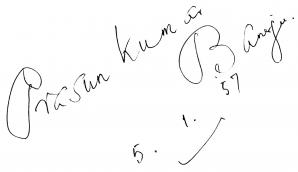 Prasun Kumar
Banerji.
57
5. 1.